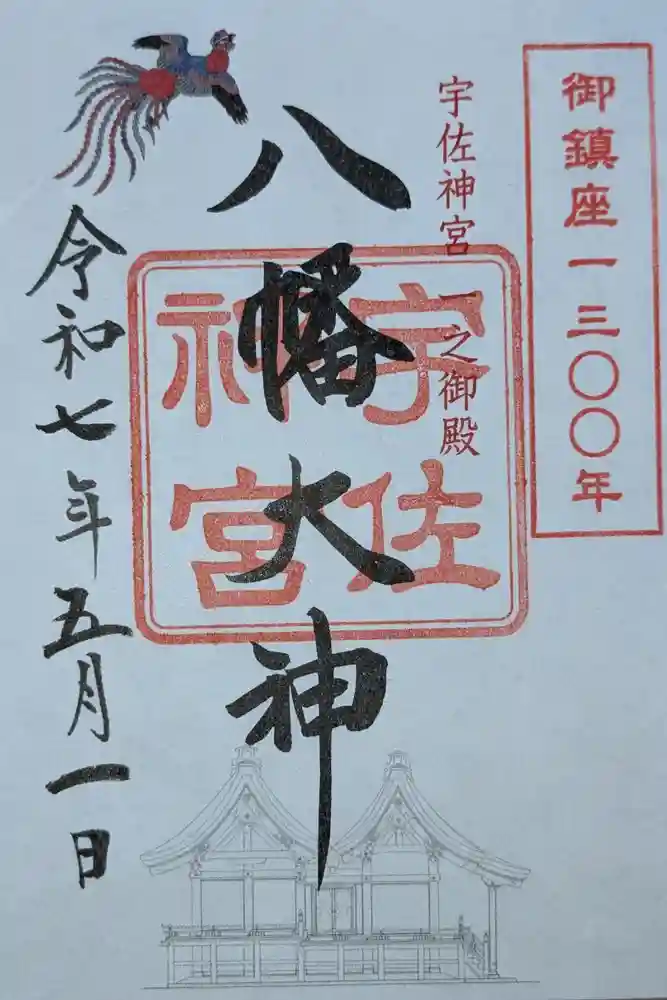 御鎮座一三〇〇年
宇佐神宮一之御殿
宇佐
神宮
八幡大神
令和七年五月一日